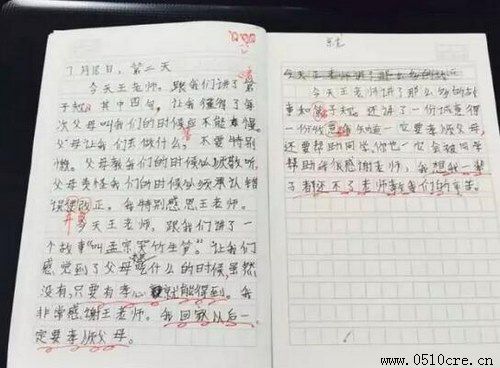 7月18日,第二天
今天王老师。跟我们讲了弟
子规。其中四句,让我懂得了每
次父母叫我们的时候应不能懒。
父母让我们去做什么,不要特别
懒。父母教我们的时候必须敬听,
父母责怪我们的时候必须承认错
误改正。我特别感恩王老师。
今天王老师,跟我们讲了一
个故事叫孟宗哭竹生笋。让我们
感觉到了父母想吃什么的时候,虽然
没有,只要有孝心就能得到。我
非常感谢王老师。我回家以后一
定要孝顺父母。
今天王老师讲了那么多的故
事和弟子规。还讲了一份诚意得
一份收获知道一定要孝顺父母,
还要帮助同学,你也一定会被同学
帮助我很感谢老师,我想我一辈
子都还不了老师教我们的
www.0510cre.cn